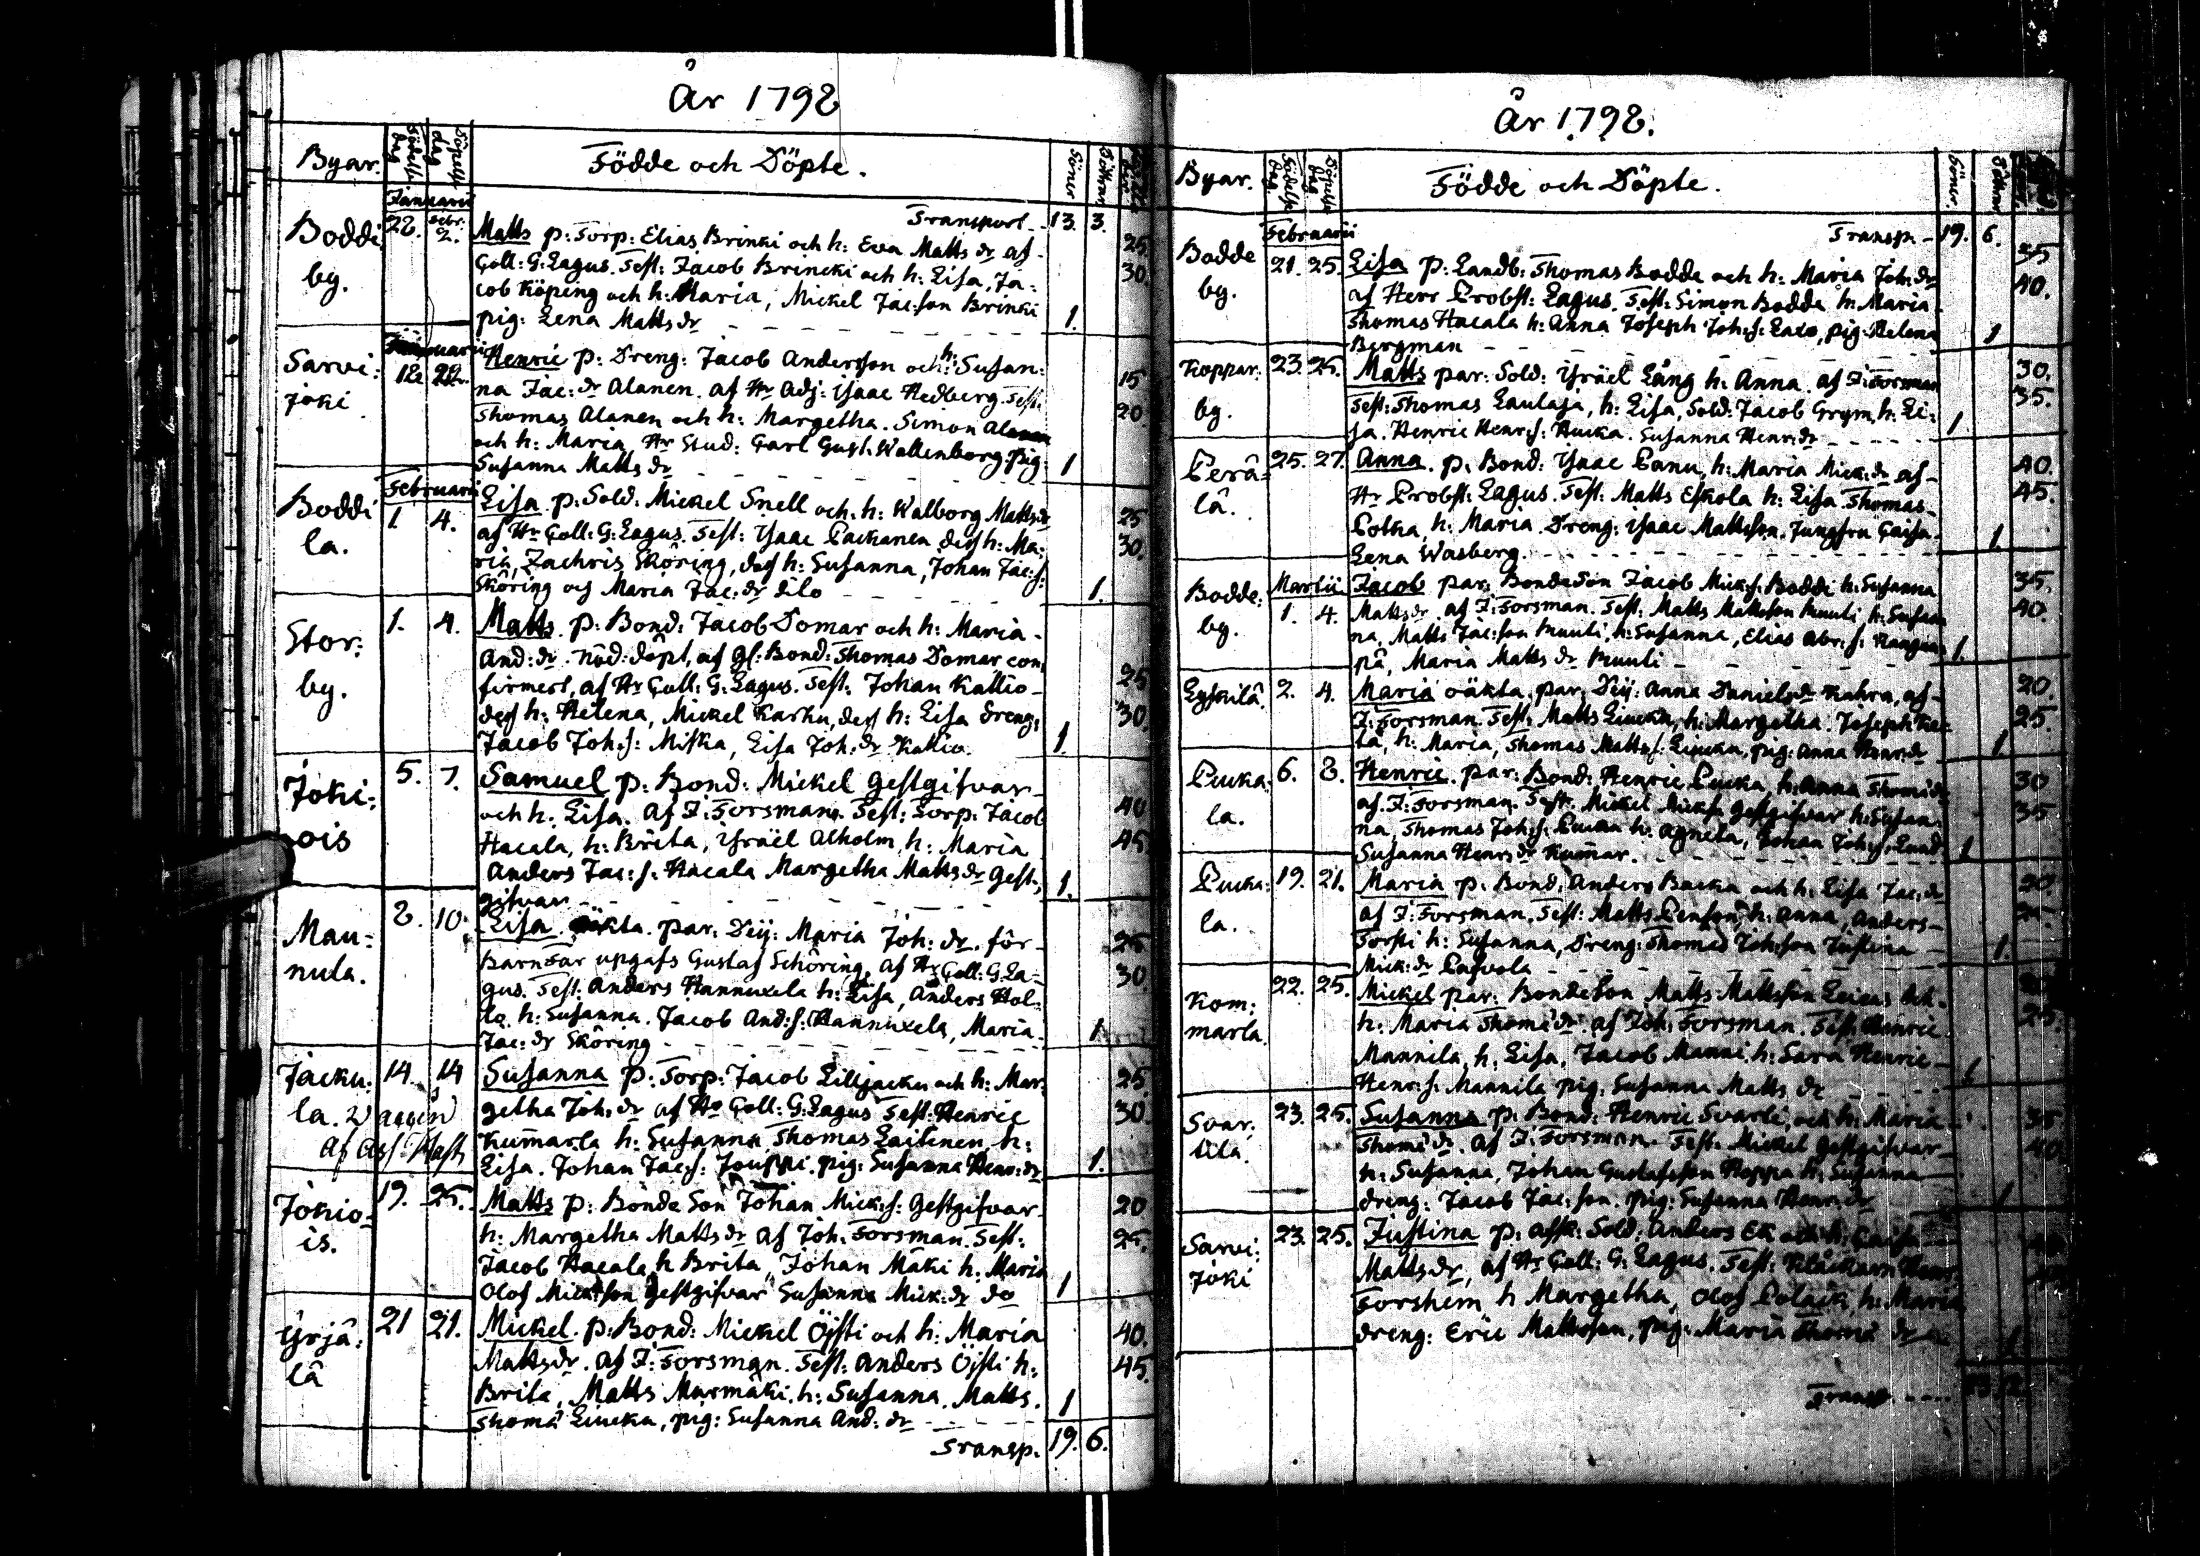 År 1798
Byar. Födelse dag Döpelse dag Födde och Döpte. Söner Döttrar
Januarii
Transport - 13. 3.
Boddi by. 28. Febr: 2. Matts p: Torp: Elias Brinki och h: Eva Matts dr af 25.
Coll: G: Lagus. Test: Jacob Brincki och h: Lisa, Ja- 30.
cob Köping och h: Maria, Mickel Jac:son Brinki
pig: Lena Matts dr 1.
Januarii
Sarvi: joki 18. 22. Henric p: Dreng: Jacob Andersson och h: Susan-
na Jac: dr Alanen. af Hr Adj: Ysaac Hedberg. Test: 15
Thomas Alanen och h: Margetha. Simon Alanen 20.
och h: Maria, Hr Stud: Carl Gust: Wallenborg Pig:
Susanna Matts dr 1
Februarii
Boddi la. 1. 4. Lisa p: Sold: Mickel Snell och h: Walborg Matts dr 25
af Hr Coll: G: Lagus. Test: Ysaac Packanen dess h: Ma- 30.
ria, Zachris Sköring, dess h: Susanna, Johan Jac: s:
Sköring och Maria Jac: dr dito 1.
Stor: by. 1. 4. Matts p: Bond: Jacob Domar och h: Maria
And: dr. Nöd: döpt, af gl: Bond: Thomas Domar con-
firmert, af Hr Coll: G: Lagus. Test: Johan Kallio 25
dess h: Helena, Mickel Karhu, dess h: Lisa dreng: 30.
Jacob Joh: s: Miska, Lisa Joh: dr Kallio. 1.
Joki: ois 5. 7. Samuel p: Bond: Mickel Gestgifvar
och h: Lisa. af J: Forsman. Test: Torp: Jacob 40
Hacala, h: Brita, Ysräel Alholm, h: Maria 45.
Anders Jac: s: Hacala Margetha Matts dr Gest-
gifvar 1.
Man: nula. 8. 10. Lisa oäkta. par: Pij: Maria Joh: dr. för 25
Barnfar upgafs Gustaf Schöring, af Hr Coll: G: La- 30.
gus. Test: Anders Hannuxela h: Lisa, Anders Hol-
lo h: Susanna. Jacob And: s: Hannuxela, Maria
Jac: dr Sköring 1.
Jacku: la. 14. 14 Susanna p: Torp: Jacob Lilljacku och h: Mar- 25
getha Joh: dr af Hr Coll: G: Lagus Test: Henric 30.
Kumarla h: Susanna Thomas Laitinen h:
Lisa. Johan Jac: s: Jouppi. pig: Susanna Henr: dr 1.
Jokio- is. 19. 25. Matts p: Bonde Son Johan Mick: s: Gestgifvar 20
h: Margetha Matts dr af Joh: Forsman. Test: 25.
Jacob Hacala h Brita, Johan Mäki h: Maria
Olof Mick: son Gestgifvar Susanna Mick: dr do 1
Yrjä: lä 21 21. Mickel. p: Bond: Mickel Öjsti och h: Maria 40.
Matts dr. af J: Forsman. Test: Anders Öjsti h: 45.
Brita, Matts Marmäki, h: Susanna. Matts.
Thoma Liucka, pig: Susanna And: dr 1
Transp. 19. 6.
År 1798.
Byar. Födelse dag Döpelse dag Födde och Döpte. Söner Döttrar
Februarii
Transp. - 19. 6.
Bodde by. 21. 25. Lisa p: Landb: Thomas Bodde och h: Maria Joh: dr 35
af Herr Probst: Lagus. Test: Simon Bodde h: Maria 40.
Thomas Hacala h: Anna Joseph Joh: s: pig: Helena
Bergman 1
Koppar: by. 23. 25. Matts par: Sold: Ysräel Lång h: Anna. af J: Forsman 30.
Test: Thomas Laulaja, h: Lisa, Sold: Jacob Grym, h: Li- 35.
sa. Henric Henr: s: Hucka. Susanna Henr: dr 1
Perä- lä. 25. 27. Anna. p: Bond: Ysaac Panu, h: Maria Mick: dr af 40.
Hr Probst: Lagus. Test: Matts Eskola h: Lisa Thomas 45.
Potka, h: Maria Dreng: Ysaac Mattsson. Jungfru Caisa
Lena Wasberg. 1.
Martii
Bodde: by. 1. 4. Jacob par: Bonde Son Jacob Mick: s: Boddi h: Susanna 35.
Matts dr af J: Forsman. Test: Matts Mattsson Muuli h: Susan- 40.
na, Matts Jac: son Muuli, h: Susanna, Elias Abr: s:
pä, Maria Matts dr Muuli 1.
2. 4. Maria oäkta. par: Pij: Anna Daniels dr Kahra, af 20.
J: Forsman. Test: Matts Liucka, h: Margetha. Joseph 25.
lä, h: Maria, Thomas Matts: s: Liucka, pig: Anna Henr: dr 1
Pucka la. 6. 8. Henric. par: Bond: Henric Pucka, h: Anna Thoms dr 30
af J: Forsman. Test: Mickel Mick: s: Gestgifvar h: Susan- 35
na, Thomas Joh: s: Pucka h: Agneta, Johan Joh: s: Lund
Susanna Henrs dr Kumar. 1
Pucka: la. 19. 21. Maria p: Bond: Anders Backa och h: Lisa Jac: dr
af J: Forsman, Test: Matts h: Anna, Anders
Torsti h: Susanna, Dreng: Thomas Joh: son Justina
Mick: dr 1.
Kom: marla. 22. 25. Mickel par: Bonde Son Matts Mattsson och
h: Maria Thoms dr af Joh: Forsman. Test: Henric 25.
Mannila, h: Lisa, Jacob Manni h: Sara Henric
Henr: s: Mannila pig: Susanna Matts dr 1.
Svar: tila. 23. 25. Susanna p: Bond: Henric Svarti, och h: Maria 35
Thoms dr. af J: Forsman. Test: Mickel Gestgifvar 40.
h: Susanna, Johan Gustafsson h: Susanna
dreng: Jacob Jac: son. pig: Susanna Henr: dr 1
Sarvi: joki 23. 25. Justina p: afsk: Sold: Anders Ek och h: Caisa
Matts dr, af Hr Coll: G: Lagus. Test:
Forshem h Margetha, Olof Polack h: Maria
dreng: Eric Mattsson, pig: Maria Thoms dr 1
Transp.